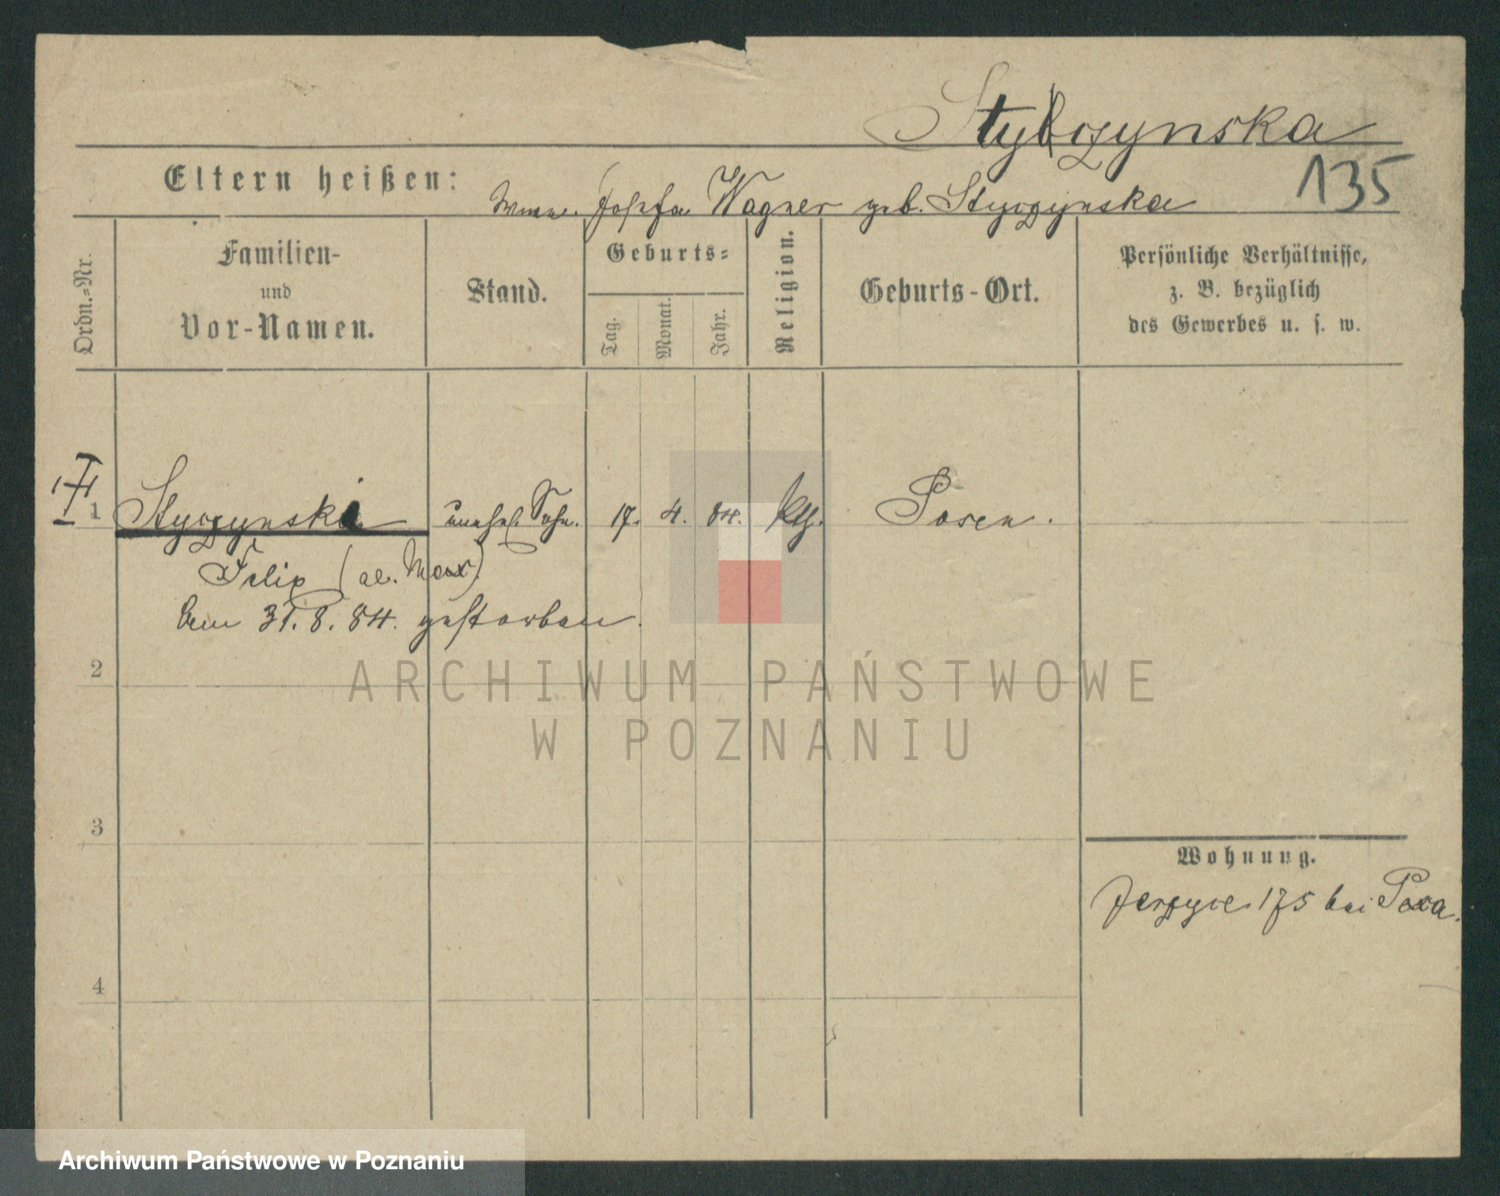 Styczynska
135
Eltern heißen:
Wwe. Josefa Wagner geb. Styczynska
Ordn.-Nr.
Familien-
und
Vor-Namen.
Stand.
Geburts-
Tag.
Monat.
Jahr.
Religion.
Geburts-Ort.
Persönliche Verhältnisse,
z. B. bezüglich
des Gewerbes u. s. w.
1
Styczynski
unehel. Sohn.
17.
4.
84.
kth.
Posen.
Felix (al. Max)
Am 31.8.84. gestorben.
2
3
4
Wohnung.
Jerzyce 175 bei
ARCHIWUM PAŃSTWOWE
W POZNANIU
Archiwum Państwowe w Poznaniu